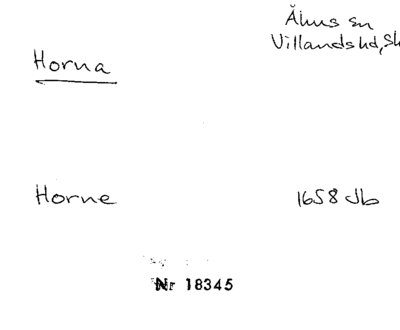 Åhus sn
Villands hd, Sk
Horna
Horne 1658 Jb
Nr 18345